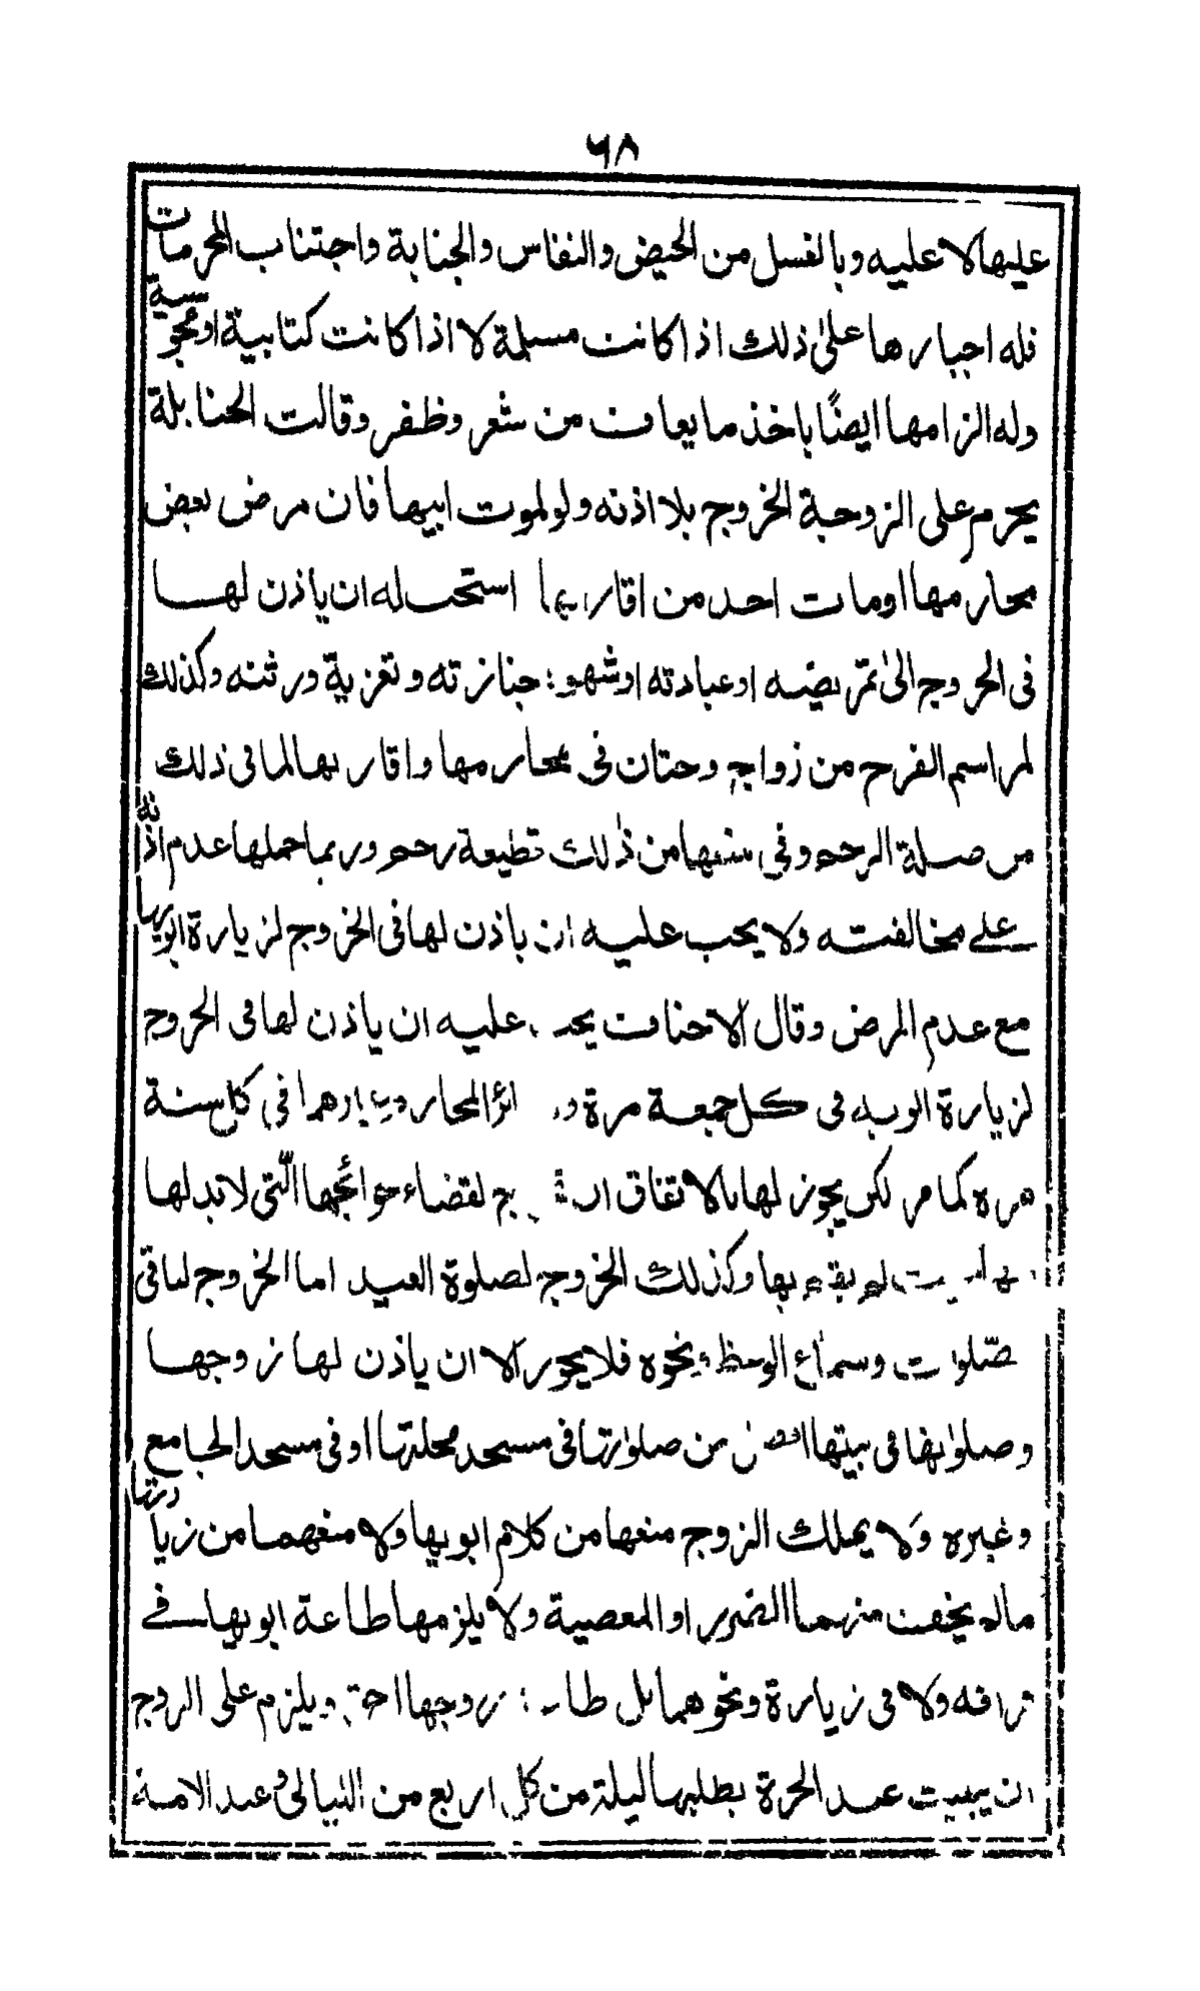 ٦٨
عليها لا عليه وبالغسل من الحيض والنفاس والجنابة واجتناب المحرمات
فله اجبارها على ذلك اذا كانت مسلمة لا اذا كانت كتابية او مجوسية
وله الزامها ايضًا باخذ ما يعاف من شعر وظفر وقالت الحنابلة
يحرم على الزوجة الخروج بلا اذنه ولو لموت ابيها فان مرض بعض
محارمها او مات احد من اقاربها استحب له ان ياذن لها
فى الخروج الى تمريضه او عيادته او شهود جنازته وتعزية ورثته وكذلك
لمراسم الفرح من زواج وختان فى محارمها واقاربها لما فى ذلك
من صلة الرحم وفى منعها من ذلك قطيعة رحم وربما حملها عدم اذنه
على مخالفته ولا يجب عليه ان ياذن لها فى الخروج لزيارة ابويها
مع عدم المرض وقال الاحناف يجب عليه ان ياذن لها فى الخروج
لزيارة ابويه فى كل جمعة مرة المحارم فى كل سنة
مره كما مر لكن يجوز لها بالاتفاق لقضاء حوائجها التى لا بد لها
لم يقم بها وكذلك الخروج لصلوة العيد اما الخروج لباقى
صلوات وسماع الوعظ ونحوه فلا يجوز الا ان ياذن لها زوجها
وصلواتها فى بيتها افضل من صلواتها فى مسجد محلتها او فى مسجد الجامع
وغيره ولا يملك الزوج منعها من كلام ابويها ولا منعهما من زيارتها
ما لم يخف منهما الضرر او المعصية ولا يلزمها طاعة ابويها فے
فراقه ولا فى زيارة ونحوهما بل طاعة زوجها احق ويلزم على الزوج
ان يبيت عند الحرة بطلبها ليلة من كل اربع من الليالى وعند الامة